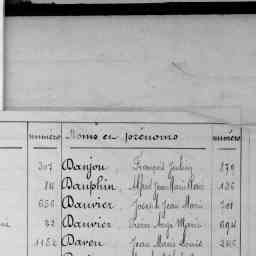 numéro Noms et prénoms numéro
307 Danjou, François Julien 879
Dauphin, Alfred Jean Marie 136
656 Dauvier, Joseph Jean Marie 701
32 Dauvier, Pierre Ange Marie 694
1152 Daven Jean Marie Louis 265